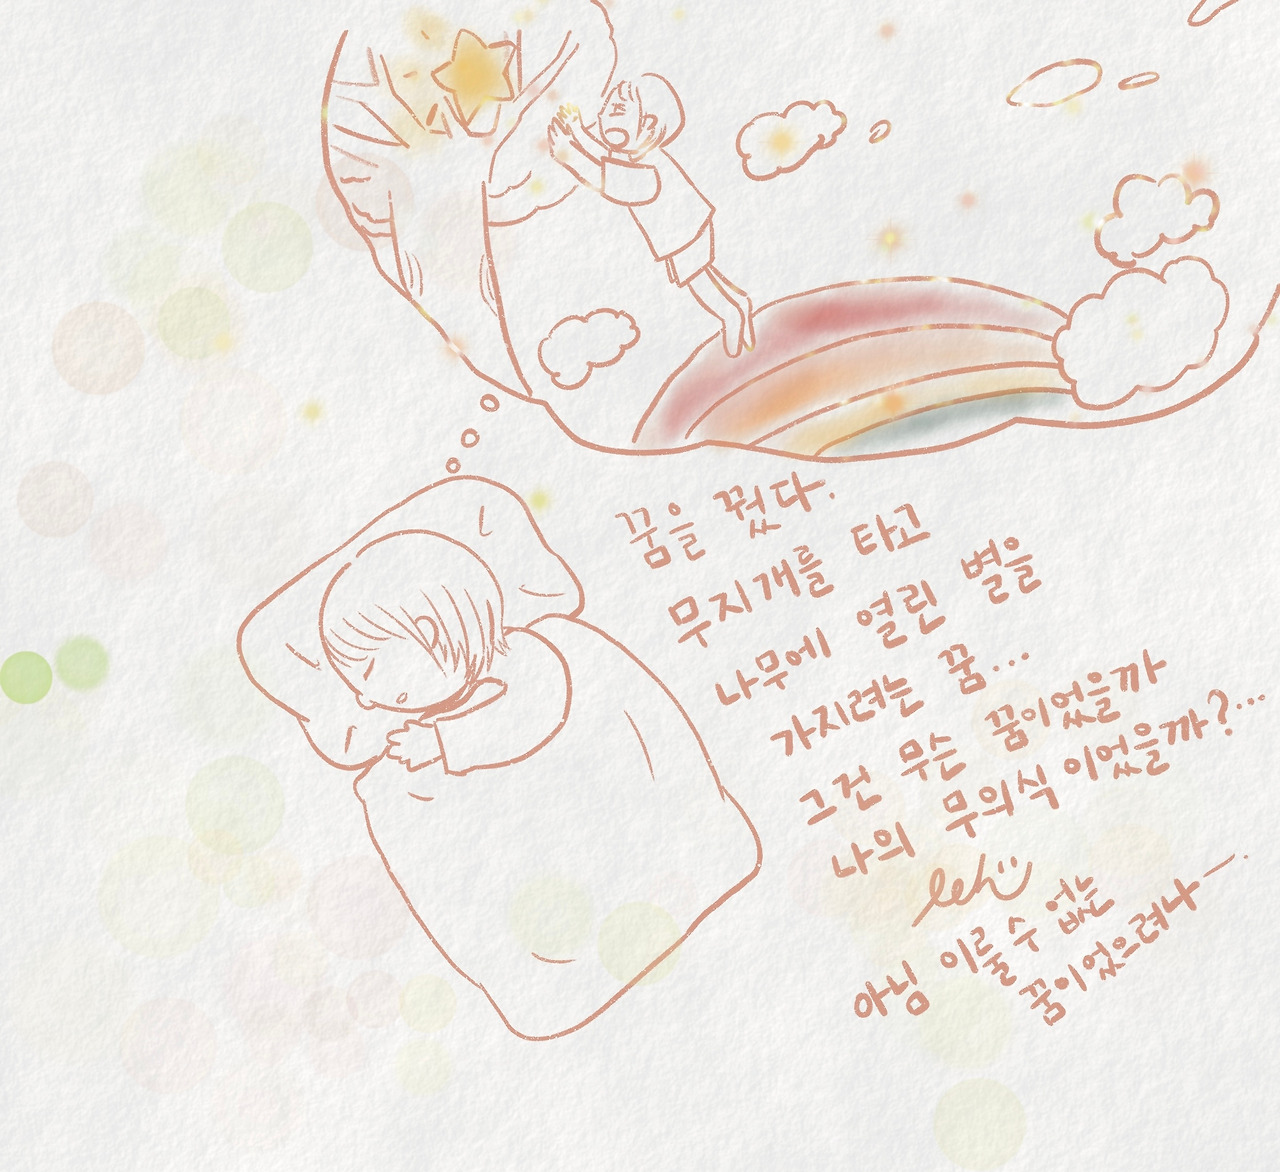 꿈을 꿨다.
무지개를 타고
나무에 열린 별을
가지려는 꿈...
그건 무슨 꿈이었을까
나의 무의식 이었을까?...
leh
아님 이룰 수 없는
꿈이었으려나ㅡ.